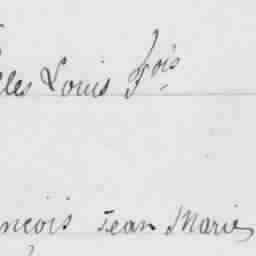 les Louis fois
nçois Jean Marie